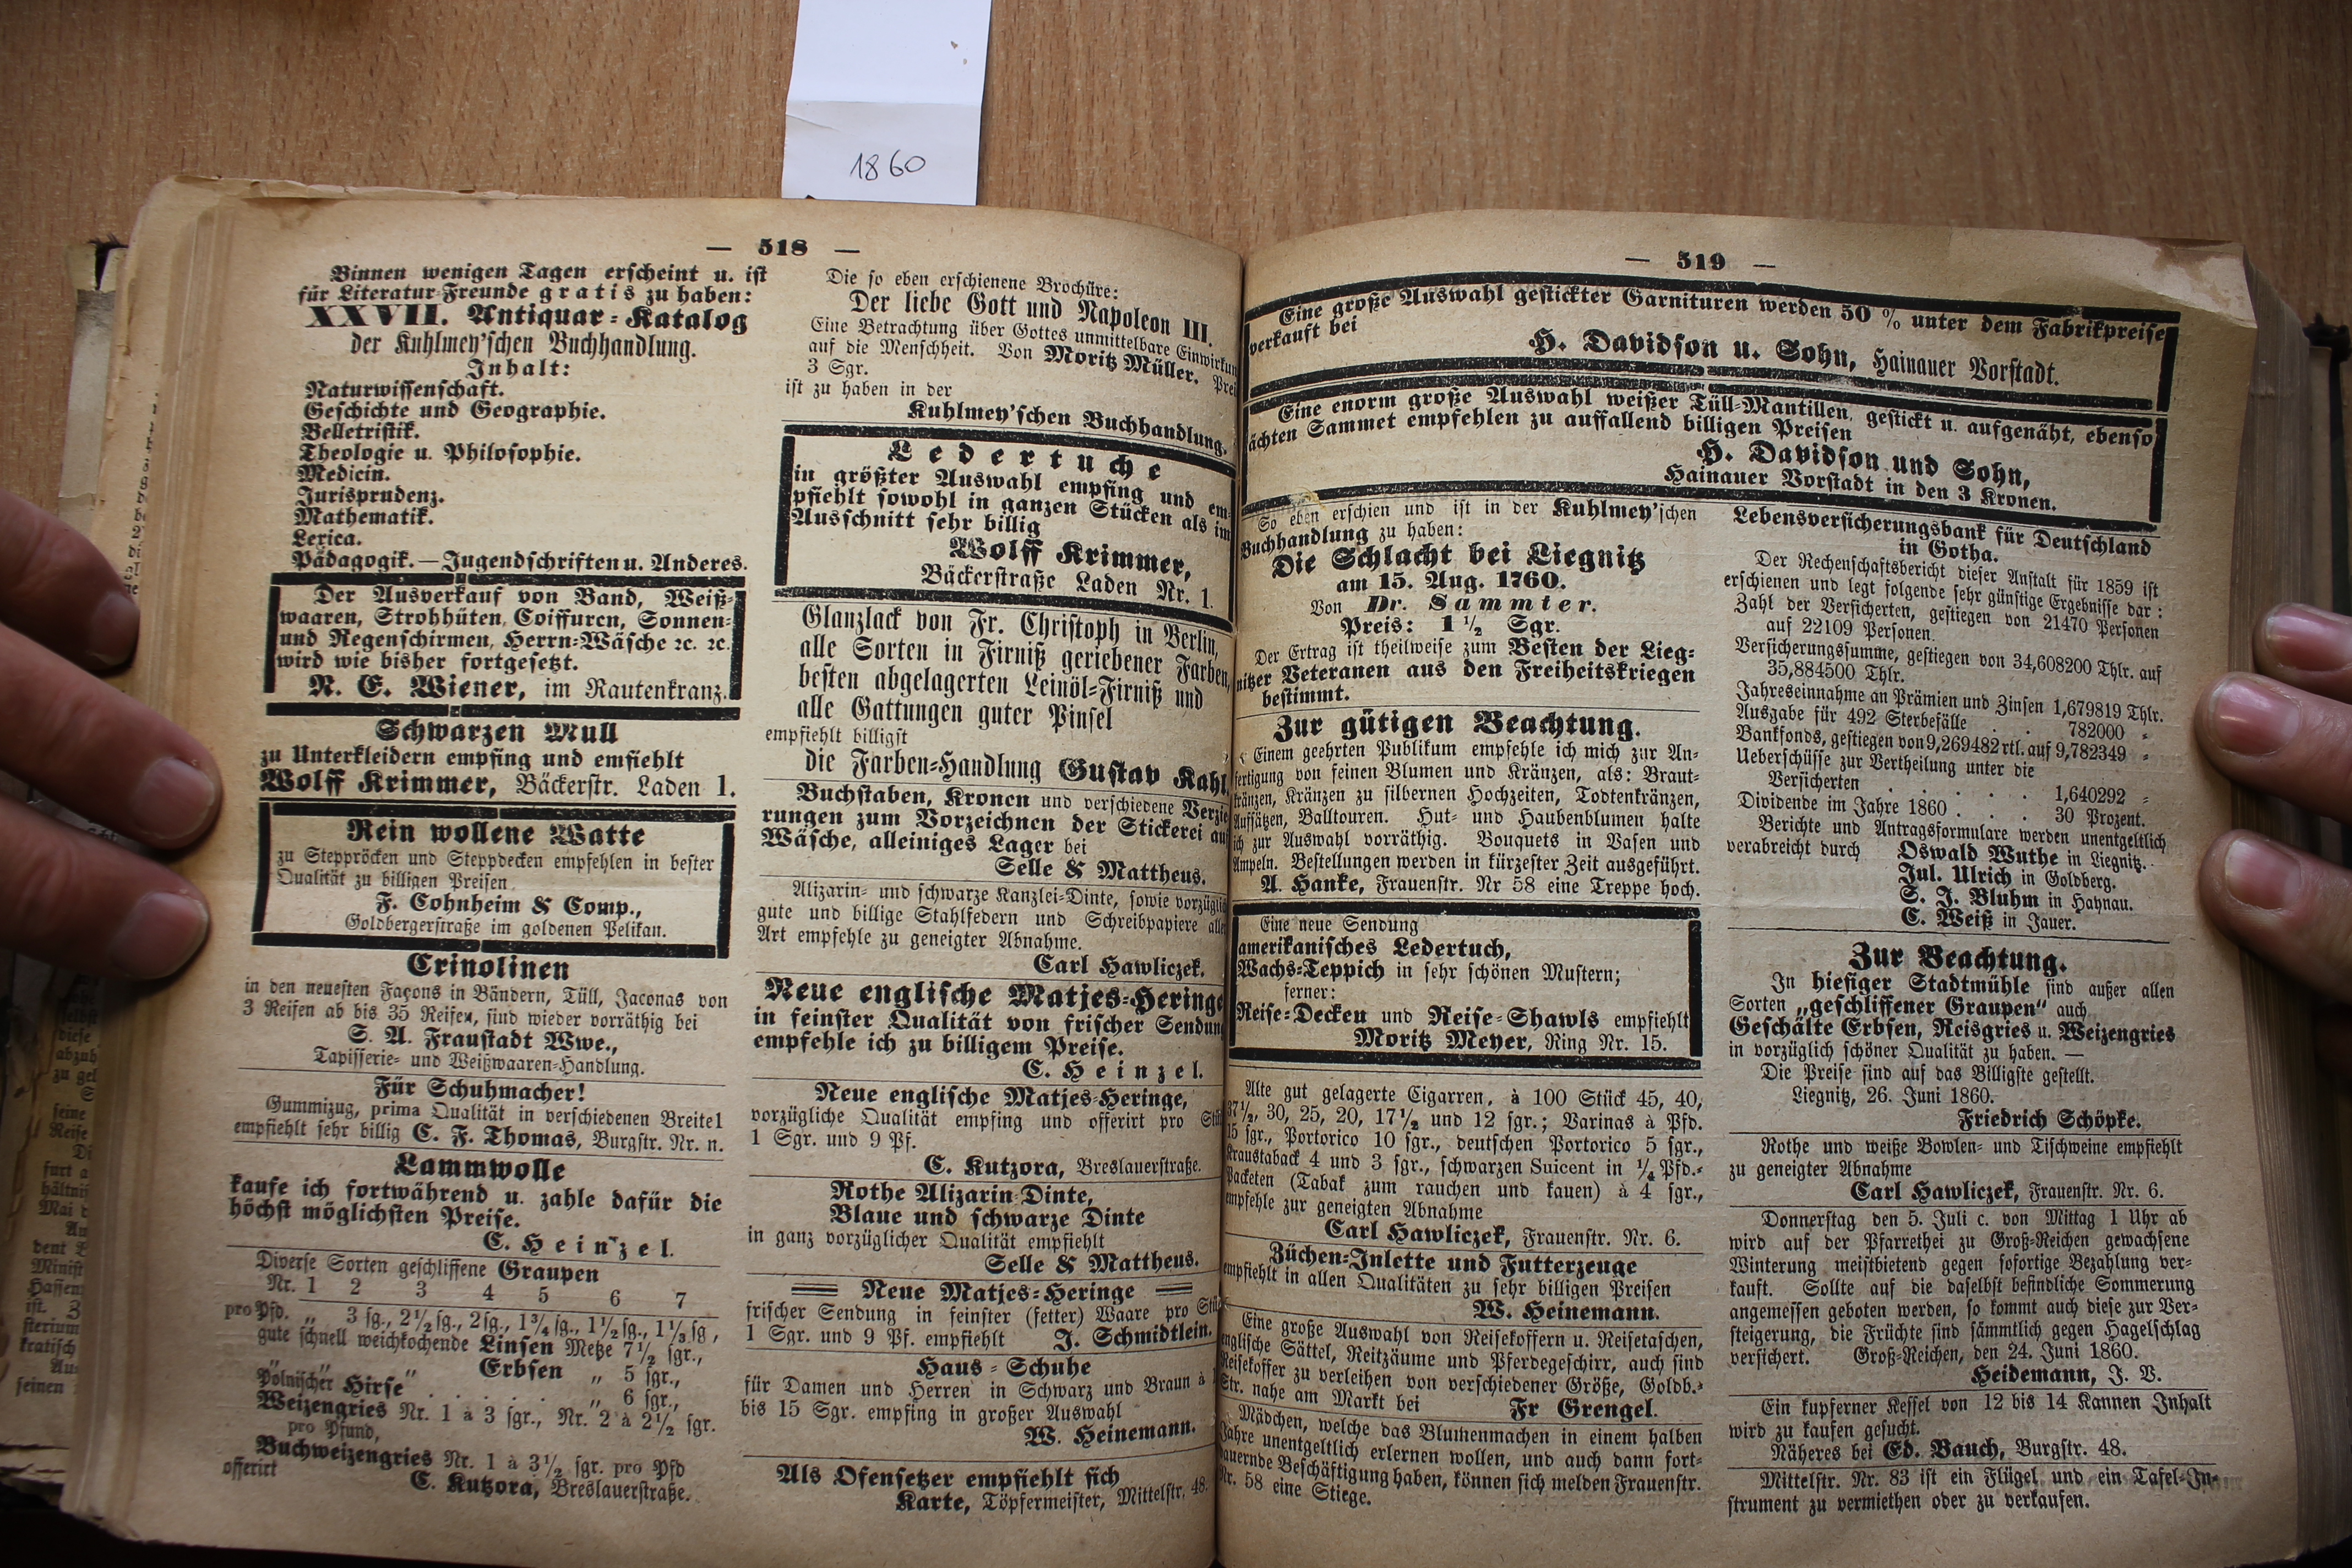 1860
— 518 —
Binnen wenigen Tagen erscheint u. ist
für Literatur-Freunde gratis zu haben:
XXVII. Antiquar-Katalog
der Kuhlmey'schen Buchhandlung.
Inhalt:
Naturwissenschaft.
Geschichte und Geographie.
Belletristik.
Theologie u. Philosophie.
Medicin.
Jurisprudenz.
Mathematik.
Lexica.
Pädagogik.—Jugendschriften u. Anderes.
Der Ausverkauf von Band, Weiß-
waaren, Strohhüten, Coiffuren, Sonnen-
und Regenschirmen, Herrn-Wäsche ꝛc. ꝛc.
wird wie bisher fortgesetzt.
N. E. Wiener, im Rautenkranz.
Schwarzen Mull
zu Unterkleidern empfing und emfiehlt
Wolff Krimmer, Bäckerstr. Laden 1.
Rein wollene Watte
zu Stepröcken und Steppdecken empfehlen in bester
Qualität zu billigen Preisen
F. Cohnheim & Comp.,
Goldbergerstraße im goldenen Pelikan.
Crinolinen
in den neuesten Façons in Bändern, Tüll, Jaconas von
3 Reifen ab bis 35 Reifen, sind wieder vorräthig bei
S. A. Fraustadt Wwe.,
Tapisserie- und Weißwaaren-Handlung.
Für Schuhmacher!
Gummizug, prima Qualität in verschiedenen Breite1
empfiehlt sehr billig C. F. Thomas, Burgstr. Nr. n.
Lammwolle
kaufe ich fortwährend u. zahle dafür die
höchst möglichsten Preise.
C. Heinzel.
Diverse Sorten geschliffene Graupen
Nr. 1 2 3 4 5 6 7
pro Pfd. „ 3 sg., 2½ sg., 2 sg., 1¾ sg., 1½ sg., 1⅓ sg.,
gute schnell weichkochende Linsen Metze 7½ sgr.,
„ „ „ Erbsen „ 5 sgr.,
Polnischer Hirse . . . . „ 6 sgr.,
Weizengries Nr. 1 à 3 sgr., Nr. 2 à 2½ sgr.
pro Pfund,
Buchweizengries Nr. 1 à 3½ sgr. pro Pfd
offerirt
C. Kutzora, Breslauerstraße.
Die so eben erschienene Brochüre:
Der liebe Gott und Napoleon III.
Eine Betrachtung über Gottes unmittelbare Einwirkun
auf die Menschheit. Von Moritz Müller. Prei
3 Sgr.
ist zu haben in der
Kuhlmey'schen Buchhandlung.
Ledertuche
in größter Auswahl empfing und em-
pfiehlt sowohl in ganzen Stücken als im
Ausschnitt sehr billig
Wolff Krimmer,
Bäckerstraße Laden Nr. 1.
Glanzlack von Fr. Christoph in Berlin,
alle Sorten in Firniß geriebener Farben,
besten abgelagerten Leinöl-Firniß und
alle Gattungen guter Pinsel
empfiehlt billigst
die Farben-Handlung Gustav Kahl.
Buchstaben, Kronen und verschiedene Verzie
rungen zum Vorzeichnen der Stickerei auf
Wäsche, alleiniges Lager bei
Selle & Mattheus.
Alizarin- und schwarze Kanzlei-Dinte, sowie vorzüglich
gute und billige Stahlfedern und Schreibpapiere aller
Art empfehle zu geneigter Abnahme.
Carl Hawliczek.
Neue englische Matjes-Heringe
in feinster Qualität von frischer Sendung
empfehle ich zu billigem Preise.
C. Heinzel.
Neue englische Matjes-Heringe,
vorzügliche Qualität empfing und offerirt pro Stü
1 Sgr. und 9 Pf.
C. Kutzora, Breslauerstraße.
Rothe Alizarin-Dinte,
Blaue und schwarze Dinte
in ganz vorzüglicher Qualität empfiehlt
Selle & Mattheus.
Neue Matjes-Heringe
frischer Sendung in feinster (fetter) Waare pro Stü
1 Sgr. und 9 Pf. empfiehlt J. Schmidtlein.
Haus-Schuhe
für Damen und Herren in Schwarz und Braun à
bis 15 Sgr. empfing in großer Auswahl
W. Heinemann.
Als Ofensetzer empfiehlt sich
Karte, Töpfermeister, Mittelstr. 48.
— 519 —
Eine große Auswahl gestickter Garnituren werden 50 % unter dem Fabrikpreise
verkauft bei
H. Davidson u. Sohn, Hainauer Vorstadt.
Eine enorm große Auswahl weißer Tüll-Mantillen, gestickt u. aufgenäht, ebenso
ächten Sammet empfehlen zu auffallend billigen Preisen
H. Davidson und Sohn,
Hainauer Vorstadt in den 3 Kronen.
So eben erschien und ist in der Kuhlmey'schen
Buchhandlung zu haben:
Die Schlacht bei Liegnitz
am 15. Aug. 1760.
Von Dr. Sammter.
Preis: 1½ Sgr.
Der Ertrag ist theilweise zum Besten der Lieg-
nitzer Veteranen aus den Freiheitskriegen
bestimmt.
Zur gütigen Beachtung.
Einem geehrten Publikum empfehle ich mich zur An-
fertigung von feinen Blumen und Kränzen, als: Braut-
kränzen, Kränzen zu silbernen Hochzeiten, Todtenkränzen,
Aufsätzen, Balltouren. Hut- und Haubenblumen halte
ich zur Auswahl vorräthig. Bouquets in Vasen und
Ampeln. Bestellungen werden in kürzester Zeit ausgeführt.
A. Hanke, Frauenstr. Nr 58 eine Treppe hoch.
Eine neue Sendung
amerikanisches Ledertuch,
Wachs-Teppich in sehr schönen Mustern;
ferner:
Reise-Decken und Reise-Shawls empfiehlt
Moritz Meyer, Ring Nr. 15.
Alte gut gelagerte Cigarren, à 100 Stück 45, 40,
37½, 30, 25, 20, 17½ und 12 sgr.; Varinas à Pfd.
15 sgr., Portorico 10 sgr., deutschen Portorico 5 sgr.,
Kraustaback 4 und 3 sgr., schwarzen Suicent in ¼ Pfd.-
Packeten (Tabak zum rauchen und kauen) à 4 sgr.,
empfehle zur geneigten Abnahme
Carl Hawliczek, Frauenstr. Nr. 6.
Züchen-Inlette und Futterzeuge
empfiehlt in allen Qualitäten zu sehr billigen Preisen
W. Heinemann.
Eine große Auswahl von Reisekoffern u. Reisetaschen,
englische Sättel, Reitzäume und Pferdegeschirr, auch sind
Reisekoffer zu verleihen von verschiedener Größe, Goldb.-
Str. nahe am Markt bei Fr Grengel.
Mädchen, welche das Blumenmachen in einem halben
Jahre unentgeltlich erlernen wollen, und auch dann fort-
dauernde Beschäftigung haben, können sich melden Frauenstr.
Nr. 58 eine Stiege.
Lebensversicherungsbank für Deutschland
in Gotha.
Der Rechenschaftsbericht dieser Anstalt für 1859 ist
erschienen und legt folgende sehr günstige Ergebnisse dar:
Zahl der Versicherten, gestiegen von 21470 Personen
auf 22109 Personen.
Versicherungssumme, gestiegen von 34,608200 Thlr. auf
35,884500 Thlr.
Jahreseinnahme an Prämien und Zinsen 1,679819 Thlr.
Ausgabe für 492 Sterbefälle . . 782000 „
Bankfonds, gestiegen von 9,269482 rtl. auf 9,782349 „
Ueberschüsse zur Vertheilung unter die
Versicherten . . . . . 1,640292 „
Dividende im Jahre 1860 . . . 30 Prozent.
Berichte und Antragsformulare werden unentgeltlich
verabreicht durch Oswald Wuthe in Liegnitz.
Jul. Ulrich in Goldberg.
S. J. Bluhm in Haynau.
C. Weiß in Jauer.
Zur Beachtung.
In hiesiger Stadtmühle sind außer allen
Sorten „geschliffener Graupen“ auch
Geschälte Erbsen, Reisgries u. Weizengries
in vorzüglich schöner Qualität zu haben. —
Die Preise sind auf das Billigste gestellt.
Liegnitz, 26. Juni 1860.
Friedrich Schöpke.
Rothe und weiße Bowlen- und Tischweine empfiehlt
zu geneigter Abnahme
Carl Hawliczek, Frauenstr. Nr. 6.
Donnerstag den 5. Juli c. von Mittag 1 Uhr ab
wird auf der Pfarrethei zu Groß-Reichen gewachsene
Winterung meistbietend gegen sofortige Bezahlung ver-
kauft. Sollte auf die daselbst befindliche Sommerung
angemessen geboten werden, so kommt auch diese zur Ver-
steigerung, die Früchte sind sämmtlich gegen Hagelschlag
versichert. Groß-Reichen, den 24. Juni 1860.
Heidemann, J. V.
Ein kupferner Kessel von 12 bis 14 Kannen Inhalt
wird zu kaufen gesucht.
Näheres bei Ed. Bauch, Burgstr. 48.
Mittelstr. Nr. 83 ist ein Flügel und ein Tafel-In-
strument zu vermiethen oder zu verkaufen.